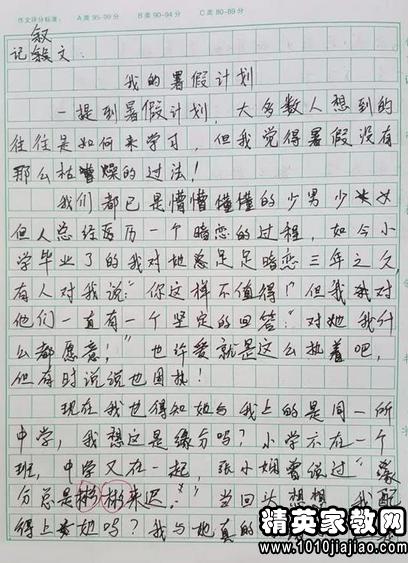 作文评分标准: A类 95-99分 B类 90-94分 C类 80-89分
叙
记文:
我的暑假计划
一提到暑假计划,大多数人想到的
往往是如何来学习,但我觉得暑假没有
那么枯燥的过法!
我们都已是懵懵懂懂的少男少女
但人总经历一个暗恋的过程,如今小
学毕业了的我对她足足暗恋三年之久
有人对我说:“你这样不值得!”但我对
他们一直有一个坚定的回答:“对她我什
么都愿意!”也许爱就是这么执着吧,
但有时说说也困扰!
现在我也得知她与我上的是同一所
中学,我想这是缘分吗?小学不在一个
班,中学又在一起,张小娴曾说过“缘
分总是彬彬来迟。”当回头想想,我配
得上她吗?我与她真的
精英家教网
www.1010jiajiao.com